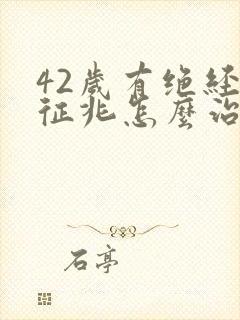 42歲有绝経
征兆怎麽治
石亭